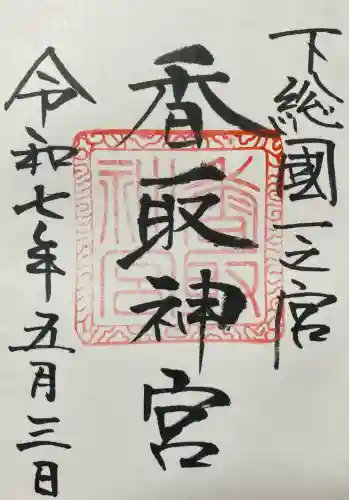 下総國一之宮
香取神宮
令和七年五月三日
香取
神宮